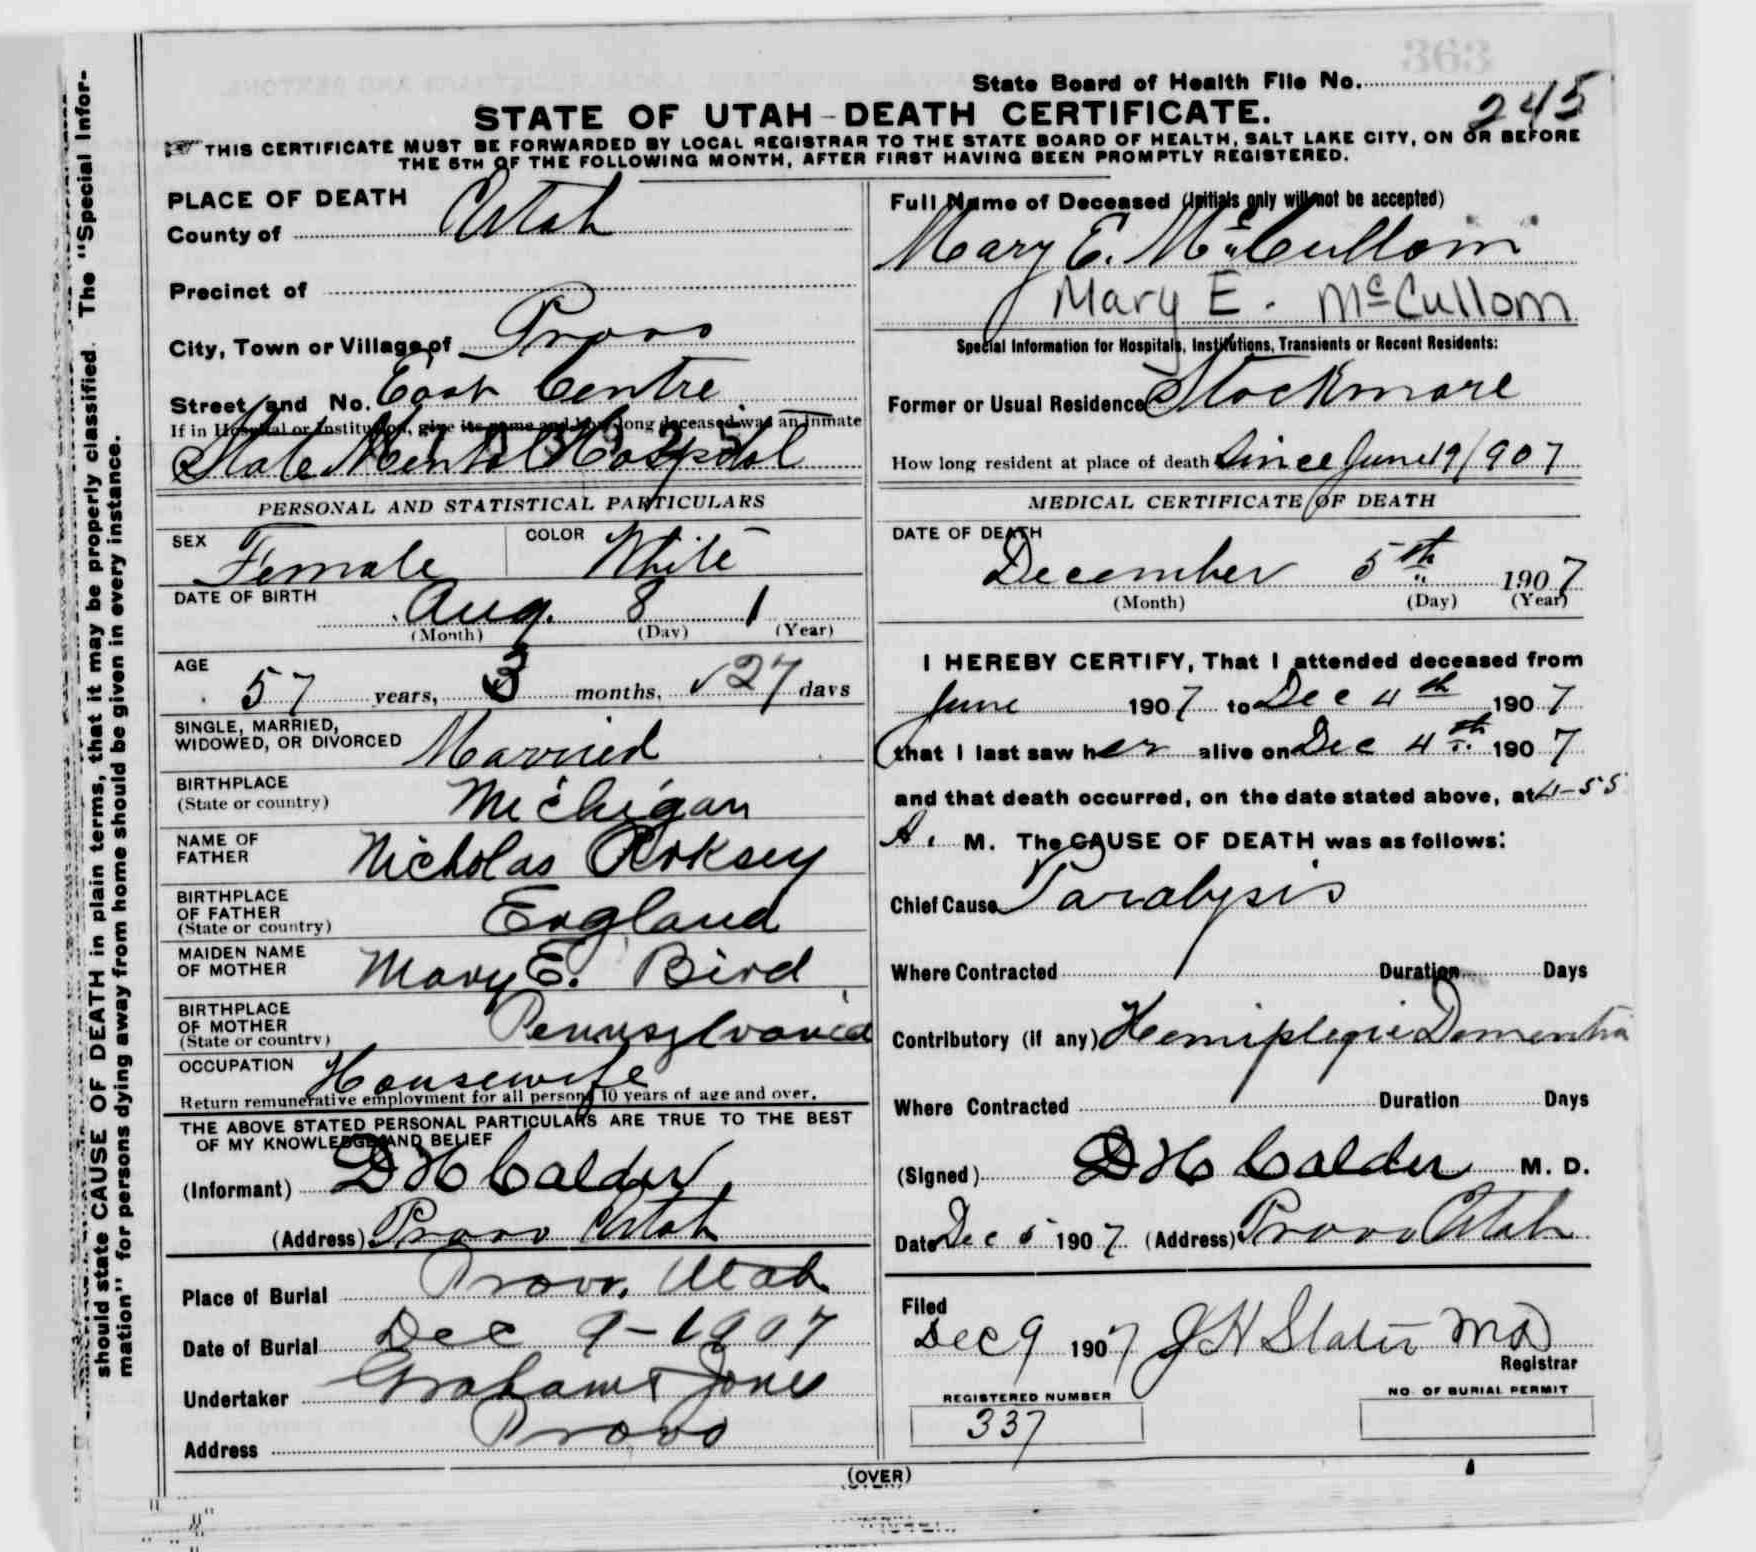 363
State Board of Health File No.
245
STATE OF UTAH-DEATH CERTIFICATE.
THIS CERTIFICATE MUST BE FORWARDED BY LOCAL REGISTRAR TO THE STATE BOARD OF HEALTH, SALT LAKE CITY, ON OR BEFORE
THE 5TH OF THE FOLLOWING MONTH, AFTER FIRST HAVING BEEN PROMPTLY REGISTERED.
should state CAUSE OF DEATH in plain terms, that it may be properly classified. The "Special Infor-
mation" for persons dying away from home should be given in every instance.
PLACE OF DEATH
County of Utah
Precinct of
City, Town or Village of Provo
Street and No. East Centre
If in Hospital or Institution, give its name and how long deceased was an inmate
State Mental Hospital
PERSONAL AND STATISTICAL PARTICULARS
SEX Female COLOR White
DATE OF BIRTH Aug. 8 1
(Month) (Day) (Year)
AGE 57 years, 3 months, 27 days
SINGLE, MARRIED,
WIDOWED, OR DIVORCED Married
BIRTHPLACE
(State or country) Michigan
NAME OF
FATHER Nicholas
BIRTHPLACE
OF FATHER
(State or country) England
MAIDEN NAME
OF MOTHER Mary E. Bird
BIRTHPLACE
OF MOTHER
(State or country) Pennsylvania
OCCUPATION Housewife
Return remunerative employment for all persons 10 years of age and over.
THE ABOVE STATED PERSONAL PARTICULARS ARE TRUE TO THE BEST
OF MY KNOWLEDGE AND BELIEF
(Informant) D H Calder
(Address) Provo Utah
Place of Burial Provo, Utah
Date of Burial Dec 9-1907
Undertaker Graham & Jones
Address Provo
Full Name of Deceased (Initials only will not be accepted)
Mary E. McCullom
Mary E. McCullom
Special Information for Hospitals, Institutions, Transients or Recent Residents:
Former or Usual Residence Stockmore
How long resident at place of death Since June 19/907
MEDICAL CERTIFICATE OF DEATH
DATE OF DEATH
December 5th 1907
(Month) (Day) (Year)
I HEREBY CERTIFY, That I attended deceased from
June 1907 to Dec 4th 1907
that I last saw her alive on Dec 4th 1907
and that death occurred, on the date stated above, at 4-55
A. M. The CAUSE OF DEATH was as follows:
Chief Cause Paralysis
Where Contracted Duration Days
Contributory (if any) Hemiplegic Dementia
Where Contracted Duration Days
(Signed) D H Calder M. D.
Date Dec 5 1907 (Address) Provo Utah
Filed
Dec 9 1907 J H Slater MD
Registrar
REGISTERED NUMBER NO. OF BURIAL PERMIT
337
(OVER)